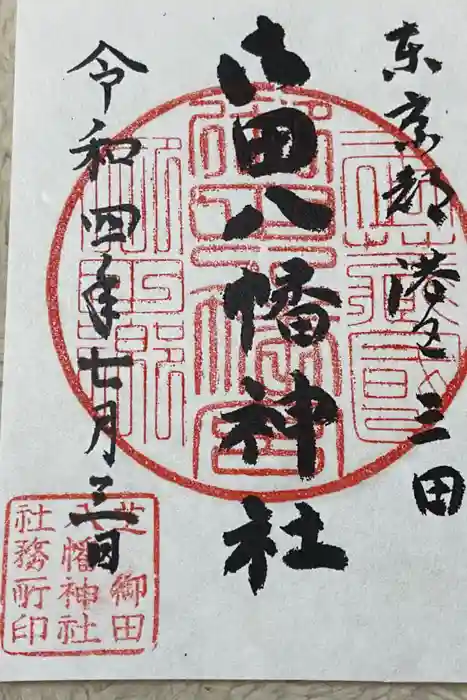 東京都港区三田
御田八幡神社
令和四年七月三日
芝御田
八幡神社
社務所印